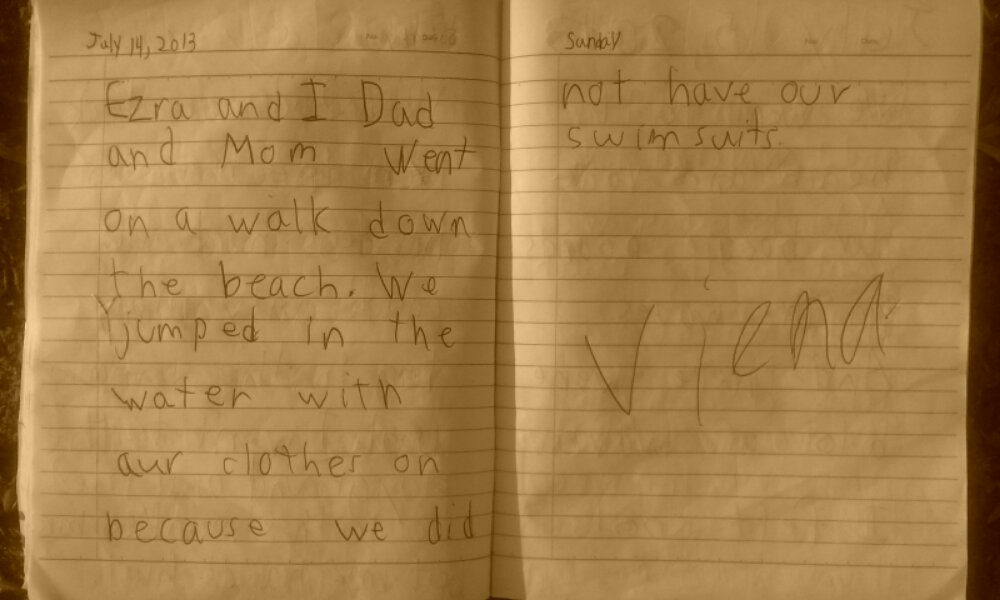 July 14, 2013
Ezra and I Dad
and Mom Went
on a walk down
the beach. We
jumped in the
water with
aur clothes on
because we did
Sunday
not have our
swimsuits.
Viena